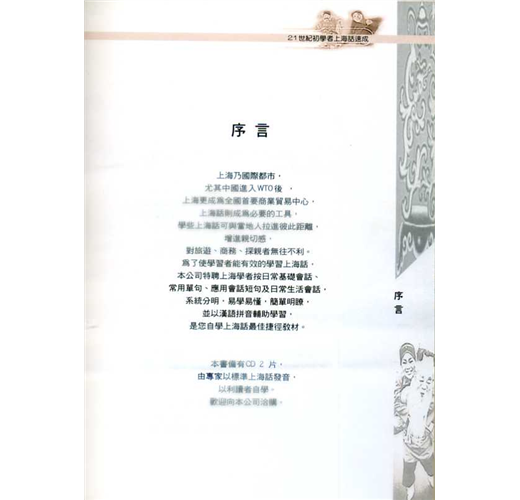 21世紀初學者上海話速成
序言
上海乃國際都市，
尤其中國進入WTO後，
上海更成為全國首要商業貿易中心，
上海話則成為必要的工具，
學些上海話可與當地人拉進彼此距離，
增進親切感，
對旅遊、商務、探親者無往不利。
為了使學習者能有效的學習上海話，
本公司特聘上海學者按日常基礎會話、
常用單句、應用會話短句及日常生活會話。
系統分明、易學易懂、簡單明瞭，
並以漢語拼音輔助學習，
是您自學上海話最佳捷徑教材。
本書備有CD 2 片，
由專家以標準上海話發音，
以利讀者自學。
歡迎向本公司洽購。
序言